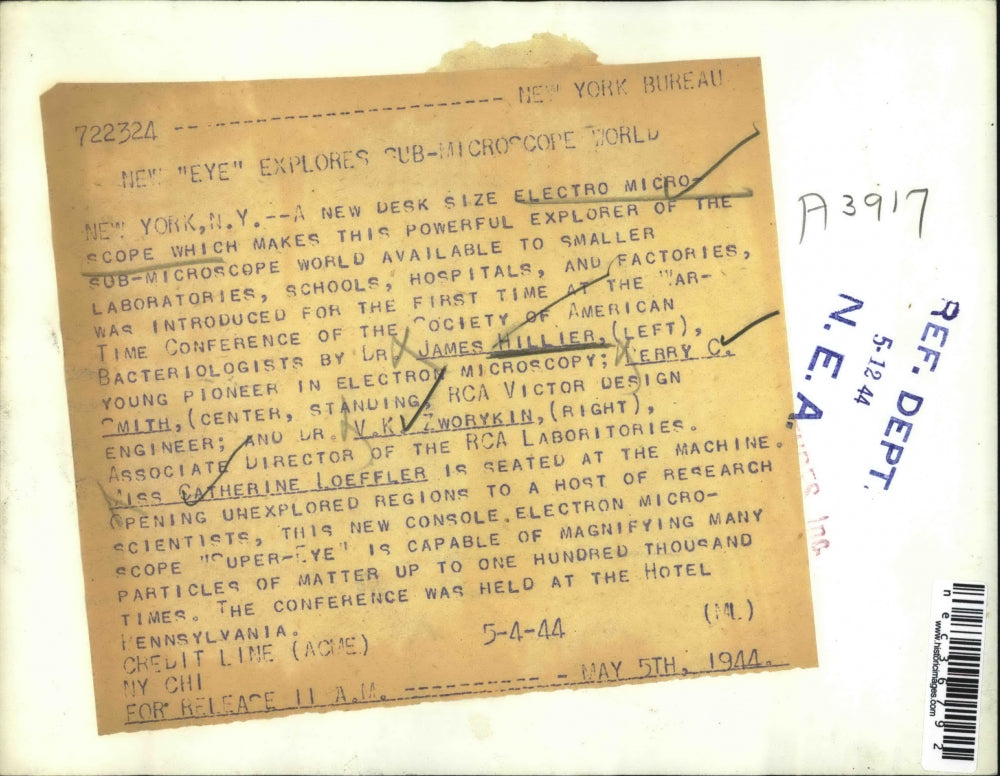 722324 -------------------------- NEW YORK BUREAU
NEW "EYE" EXPLORES SUB-MICROSCOPE WORLD
NEW YORK,N.Y.--A NEW DESK SIZE ELECTRO MICRO-
SCOPE WHICH MAKES THIS POWERFUL EXPLORER OF THE
SUB-MICROSCOPE WORLD AVAILABLE TO SMALLER
LABORATORIES, SCHOOLS, HOSPITALS, AND FACTORIES,
WAS INTRODUCED FOR THE FIRST TIME AT THE WAR-
TIME CONFERENCE OF THE SOCIETY OF AMERICAN
BACTERIOLOGISTS BY DR. JAMES HILLIER, (LEFT),
YOUNG PIONEER IN ELECTRON MICROSCOPY; TERRY C.
SMITH, (CENTER, STANDING, RCA VICTOR DESIGN
ENGINEER; AND DR. V.K. ZWORYKIN, (RIGHT),
ASSOCIATE DIRECTOR OF THE RCA LABORITORIES.
MISS CATHERINE LOEFFLER IS SEATED AT THE MACHINE.
OPENING UNEXPLORED REGIONS TO A HOST OF RESEARCH
SCIENTISTS, THIS NEW CONSOLE ELECTRON MICRO-
SCOPE "SUPER-EYE" IS CAPABLE OF MAGNIFYING MANY
PARTICLES OF MATTER UP TO ONE HUNDRED THOUSAND
TIMES. THE CONFERENCE WAS HELD AT THE HOTEL
PENNSYLVANIA.
CREDIT LINE (ACME) 5-4-44 (ML)
NY CHI
FOR RELEASE 11 A.M. ----------- - MAY 5TH, 1944.
A3917
REF. DEPT.
5-12 44
N. E. A.
Inc.
www.historicimages.com
nec36792